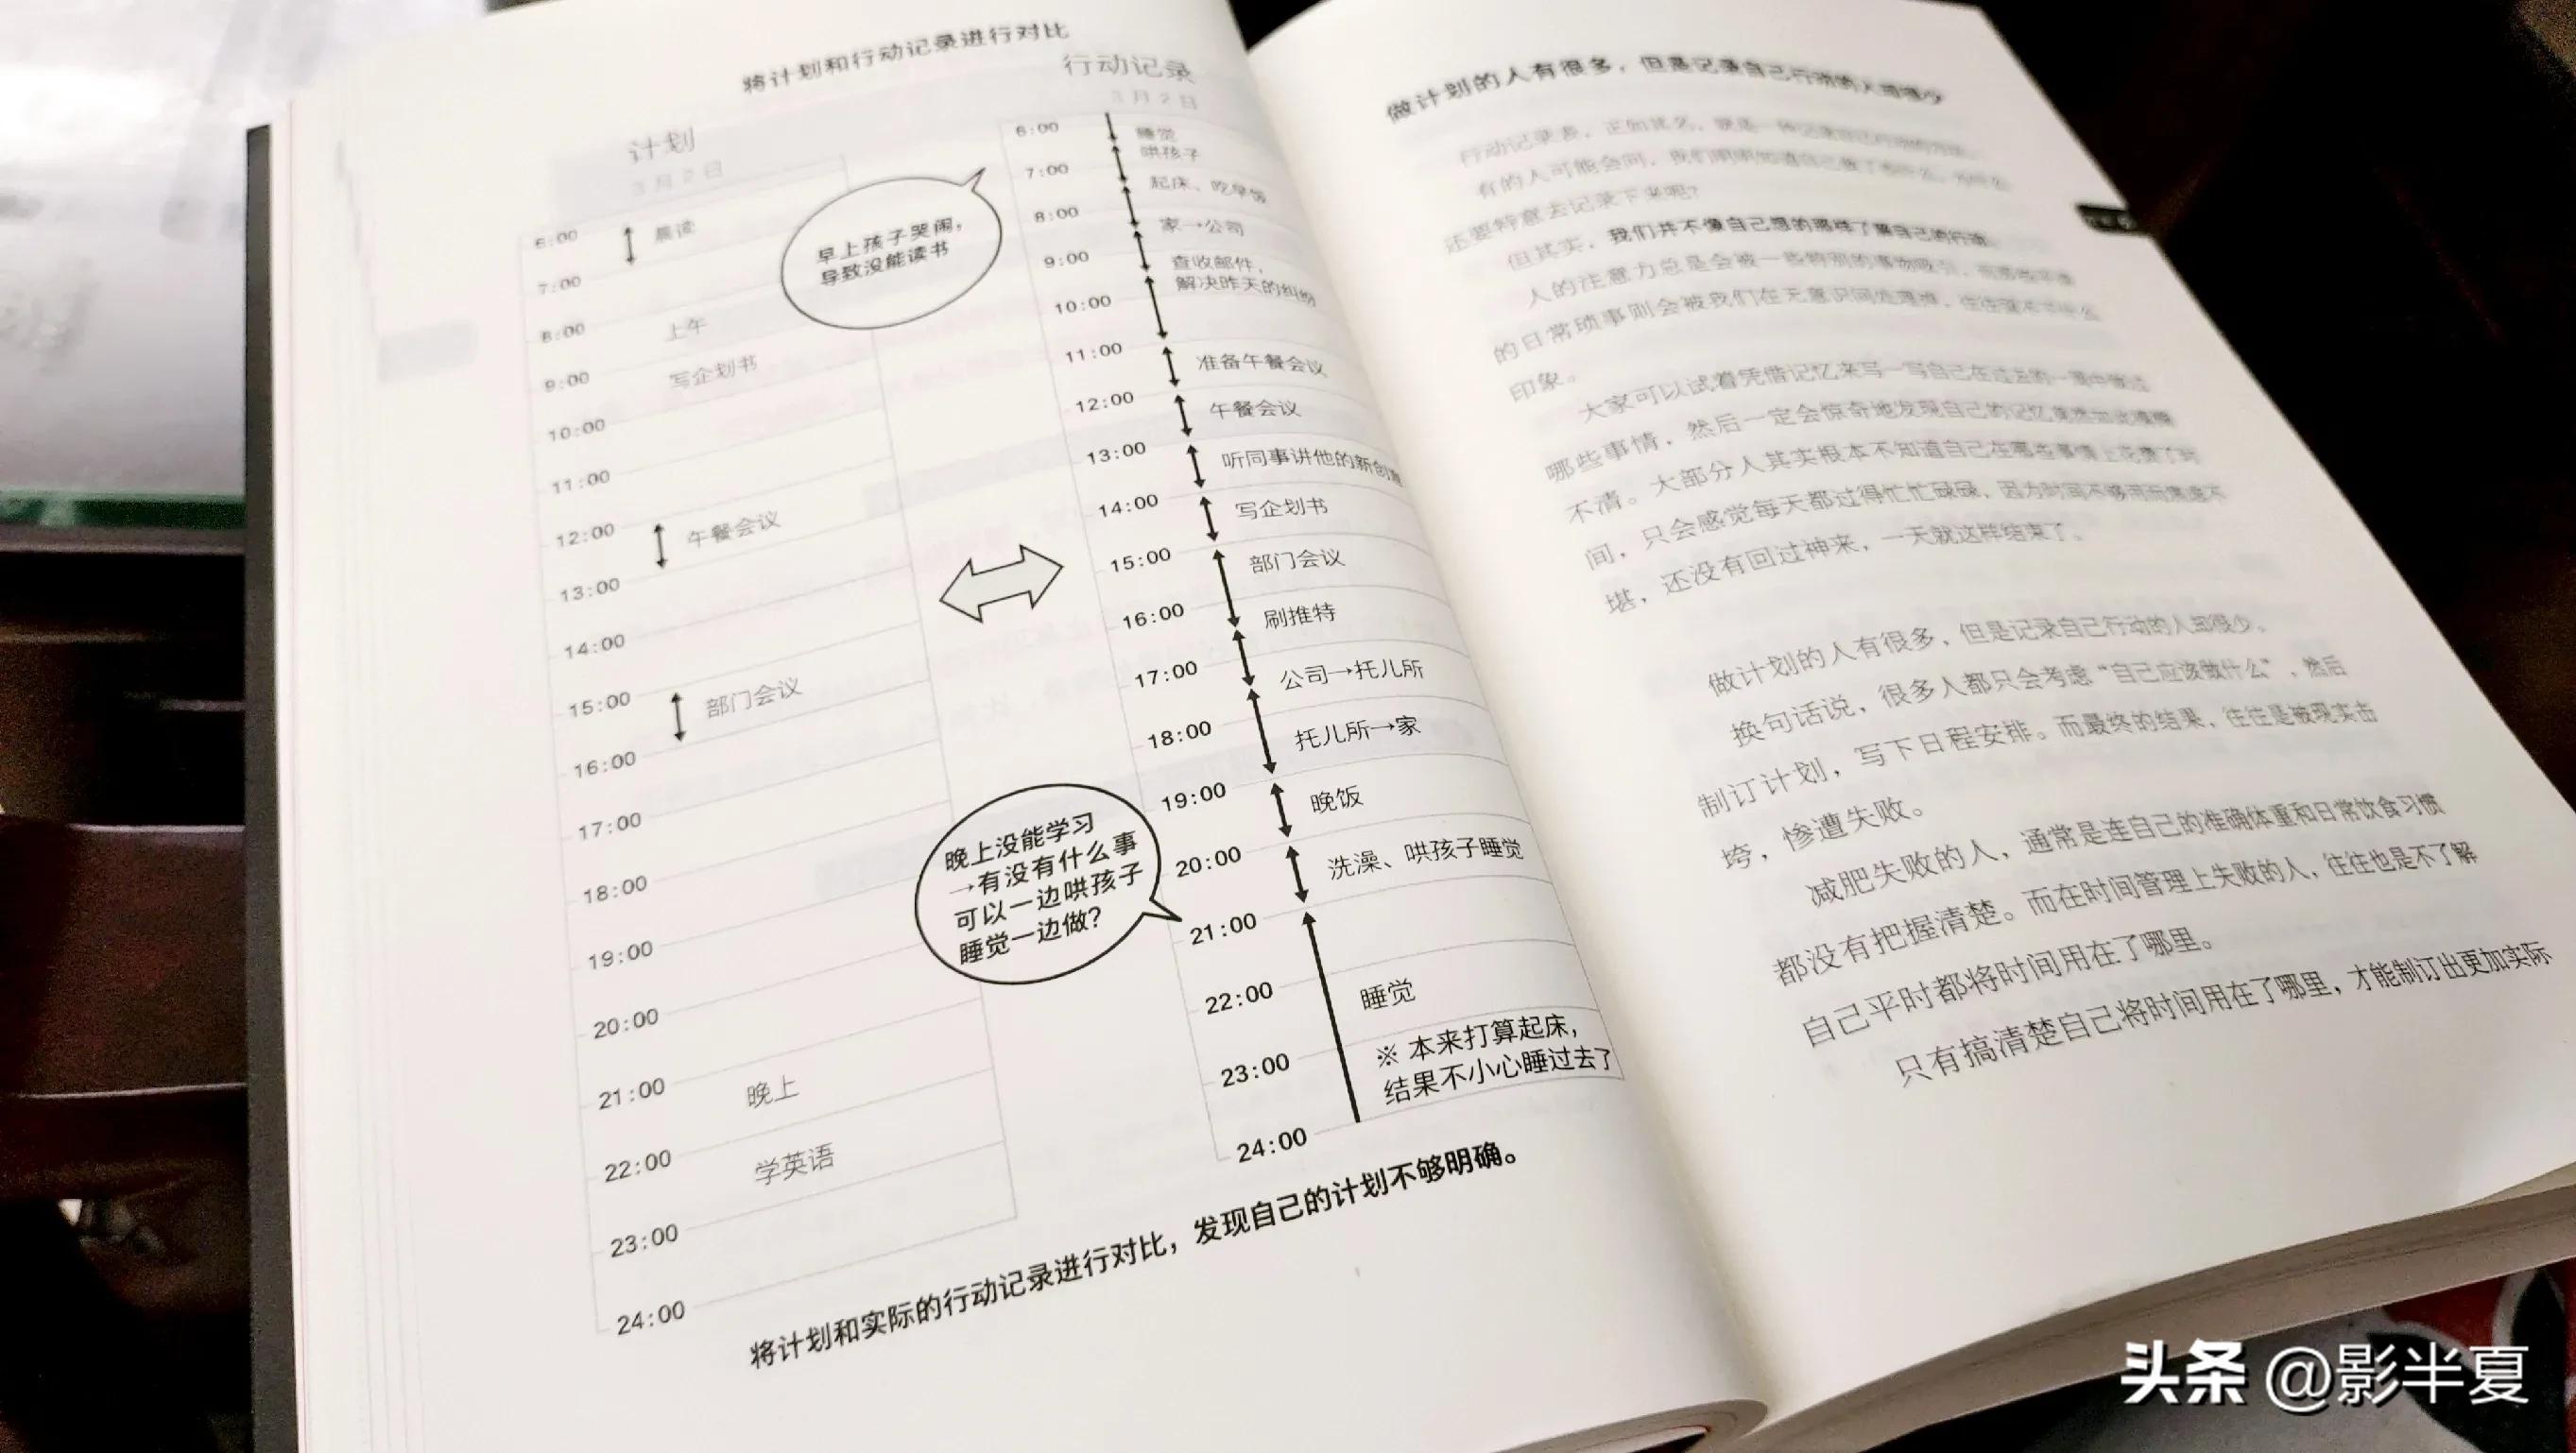 将计划和行动记录进行对比
计划
3月2日
6:00
晨读
7:00
8:00
上午
9:00
写企划书
10:00
11:00
12:00
午餐会议
13:00
14:00
15:00
部门会议
16:00
17:00
18:00
19:00
20:00
21:00
晚上
22:00
学英语
23:00
24:00
早上孩子哭闹，
导致没能读书
晚上没能学习
→有没有什么事
可以一边哄孩子
睡觉一边做？
行动记录
3月2日
6:00
睡觉
哄孩子
7:00
起床、吃早饭
8:00
家→公司
9:00
查收邮件，
解决昨天的纠纷
10:00
11:00
准备午餐会议
12:00
午餐会议
13:00
听同事讲他的新创意
14:00
写企划书
15:00
部门会议
16:00
刷推特
17:00
公司→托儿所
18:00
托儿所→家
19:00
晚饭
20:00
洗澡、哄孩子睡觉
21:00
22:00
睡觉
23:00
※ 本来打算起床，
结果不小心睡过去了
24:00
将计划和实际的行动记录进行对比，发现自己的计划不够明确。
做计划的人有很多，但是记录自己行动的人却很少
行动记录表，正如其名，就是一种记录自己行动的方法。
有的人可能会问，我们明明知道自己做了些什么，为什么
还要特意去记录下来呢？
但其实，我们并不像自己想的那样了解自己的行动。
人的注意力总是会被一些特别的事物吸引，
的日常琐事则会被我们在无意识间处理掉，往往留不下什么
印象。
大家可以试着凭借记忆来写一写自己在过去的一周中做过
哪些事情，然后一定会惊奇地发现自己的记忆竟然如此模糊
不清。大部分人其实根本不知道自己在哪些事情上花费了时
间，只会感觉每天都过得忙忙碌碌，因为时间不够用而焦虑不
堪，还没有回过神来，一天就这样结束了。
做计划的人有很多，但是记录自己行动的人却很少。
换句话说，很多人都只会考虑“自己应该做什么”，然后
制订计划，写下日程安排。而最终的结果，往往是被现实击
垮，惨遭失败。
减肥失败的人，通常是连自己的准确体重和日常饮食习惯
都没有把握清楚。而在时间管理上失败的人，往往也是不了解
自己平时都将时间用在了哪里。
只有搞清楚自己将时间用在了哪里，才能制订出更加实际
头条 @影半夏